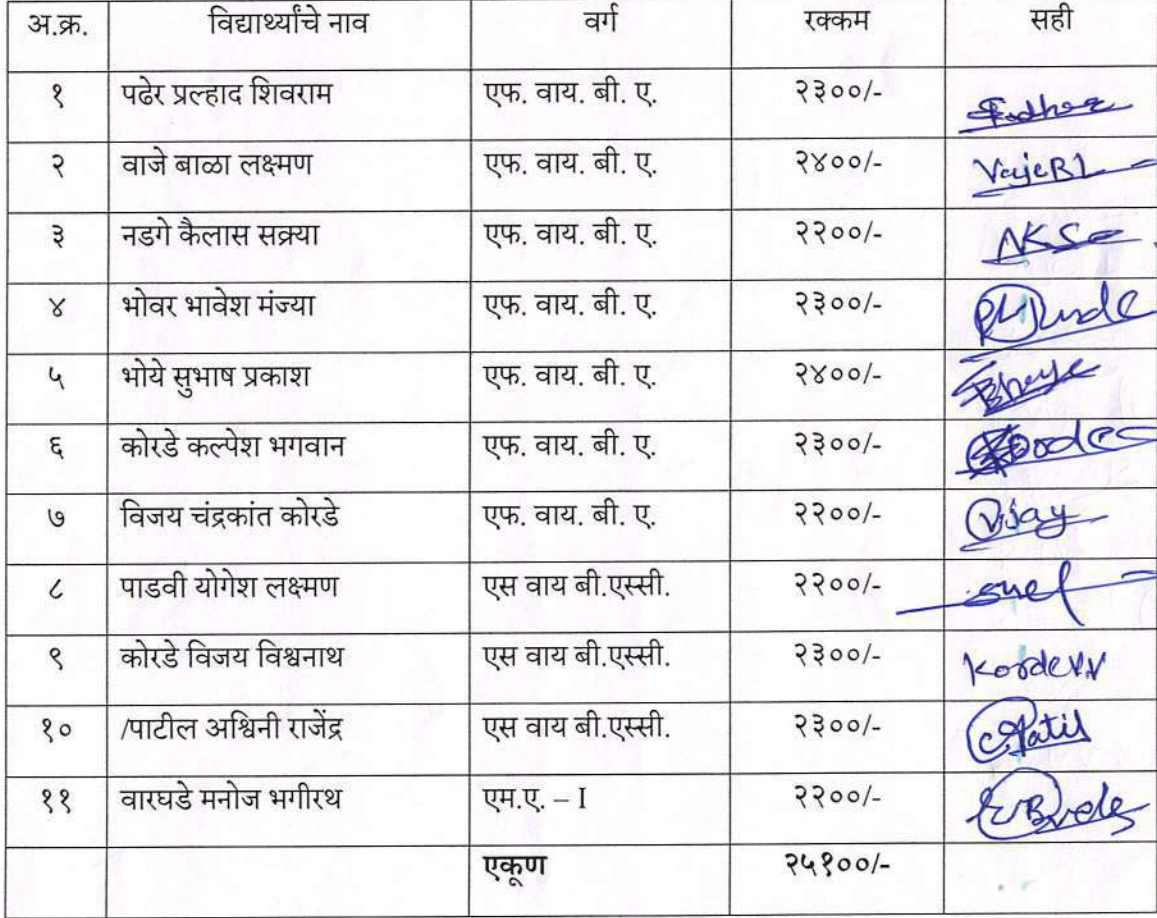 अ.क्र. विद्यार्थ्यांचे नाव वर्ग रक्कम सही
१ पढेर प्रल्हाद शिवराम एफ. वाय. बी. ए. २३००/-
२ वाजे बाळा लक्ष्मण एफ. वाय. बी. ए. २४००/- VajeBL
३ नडगे कैलास सक्र्या एफ. वाय. बी. ए. २२००/- NKS
४ भोवर भावेश मंज्या एफ. वाय. बी. ए. २३००/-
५ भोये सुभाष प्रकाश एफ. वाय. बी. ए. २४००/- Bhoye
६ कोरडे कल्पेश भगवान एफ. वाय. बी. ए. २३००/-
७ विजय चंद्रकांत कोरडे एफ. वाय. बी. ए. २२००/- Vijay
८ पाडवी योगेश लक्ष्मण एस वाय बी.एस्सी. २२००/-
९ कोरडे विजय विश्वनाथ एस वाय बी.एस्सी. २३००/- KordeVV
१० /पाटील अश्विनी राजेंद्र एस वाय बी.एस्सी. २३००/- Patil
११ वारघडे मनोज भगीरथ एम.ए. – I २२००/-
एकूण २५१००/-